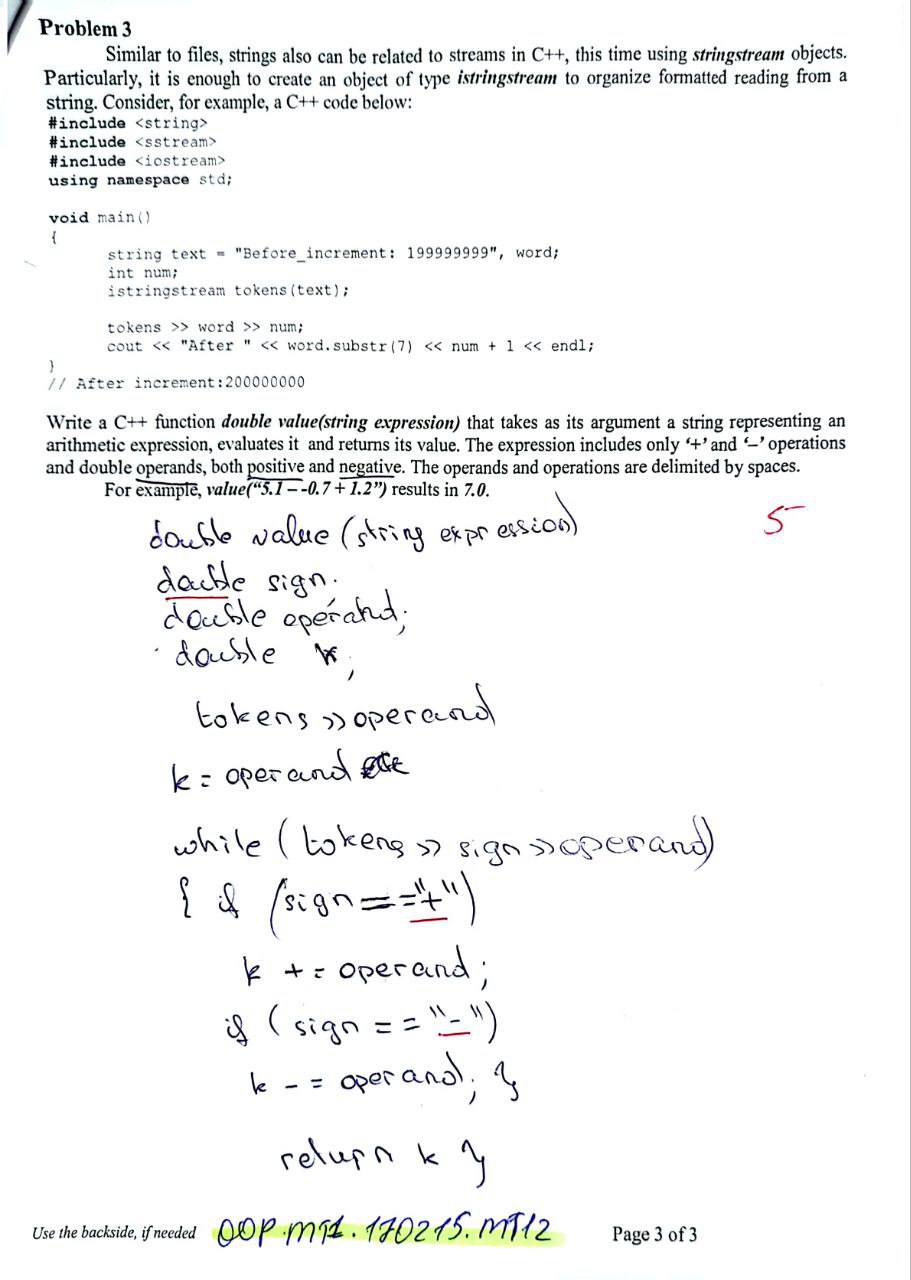 Problem 3
Similar to files, strings also can be related to streams in C++, this time using stringstream objects.
Particularly, it is enough to create an object of type istringstream to organize formatted reading from a
string. Consider, for example, a C++ code below:
#include <string>
#include <sstream>
#include <iostream>
using namespace std;
void main()
{
string text = "Before_increment: 199999999", word;
int num;
istringstream tokens(text);
tokens >> word >> num;
cout << "After " << word.substr(7) << num + 1 << endl;
}
// After increment:200000000
Write a C++ function double value(string expression) that takes as its argument a string representing an
arithmetic expression, evaluates it and returns its value. The expression includes only ‘+’ and ‘–’ operations
and double operands, both positive and negative. The operands and operations are delimited by spaces.
For example, value(“5.1 – -0.7 + 1.2”) results in 7.0.
double value (string expression)
5
double sign;
double operand;
double k;
tokens >> operand
k = operand
while (tokens >> sign >> operand)
{ if (sign == "+")
k += operand;
if (sign == "-")
k -= operand; }
return k }
Use the backside, if needed OOP.MT1.170215.MT12 Page 3 of 3